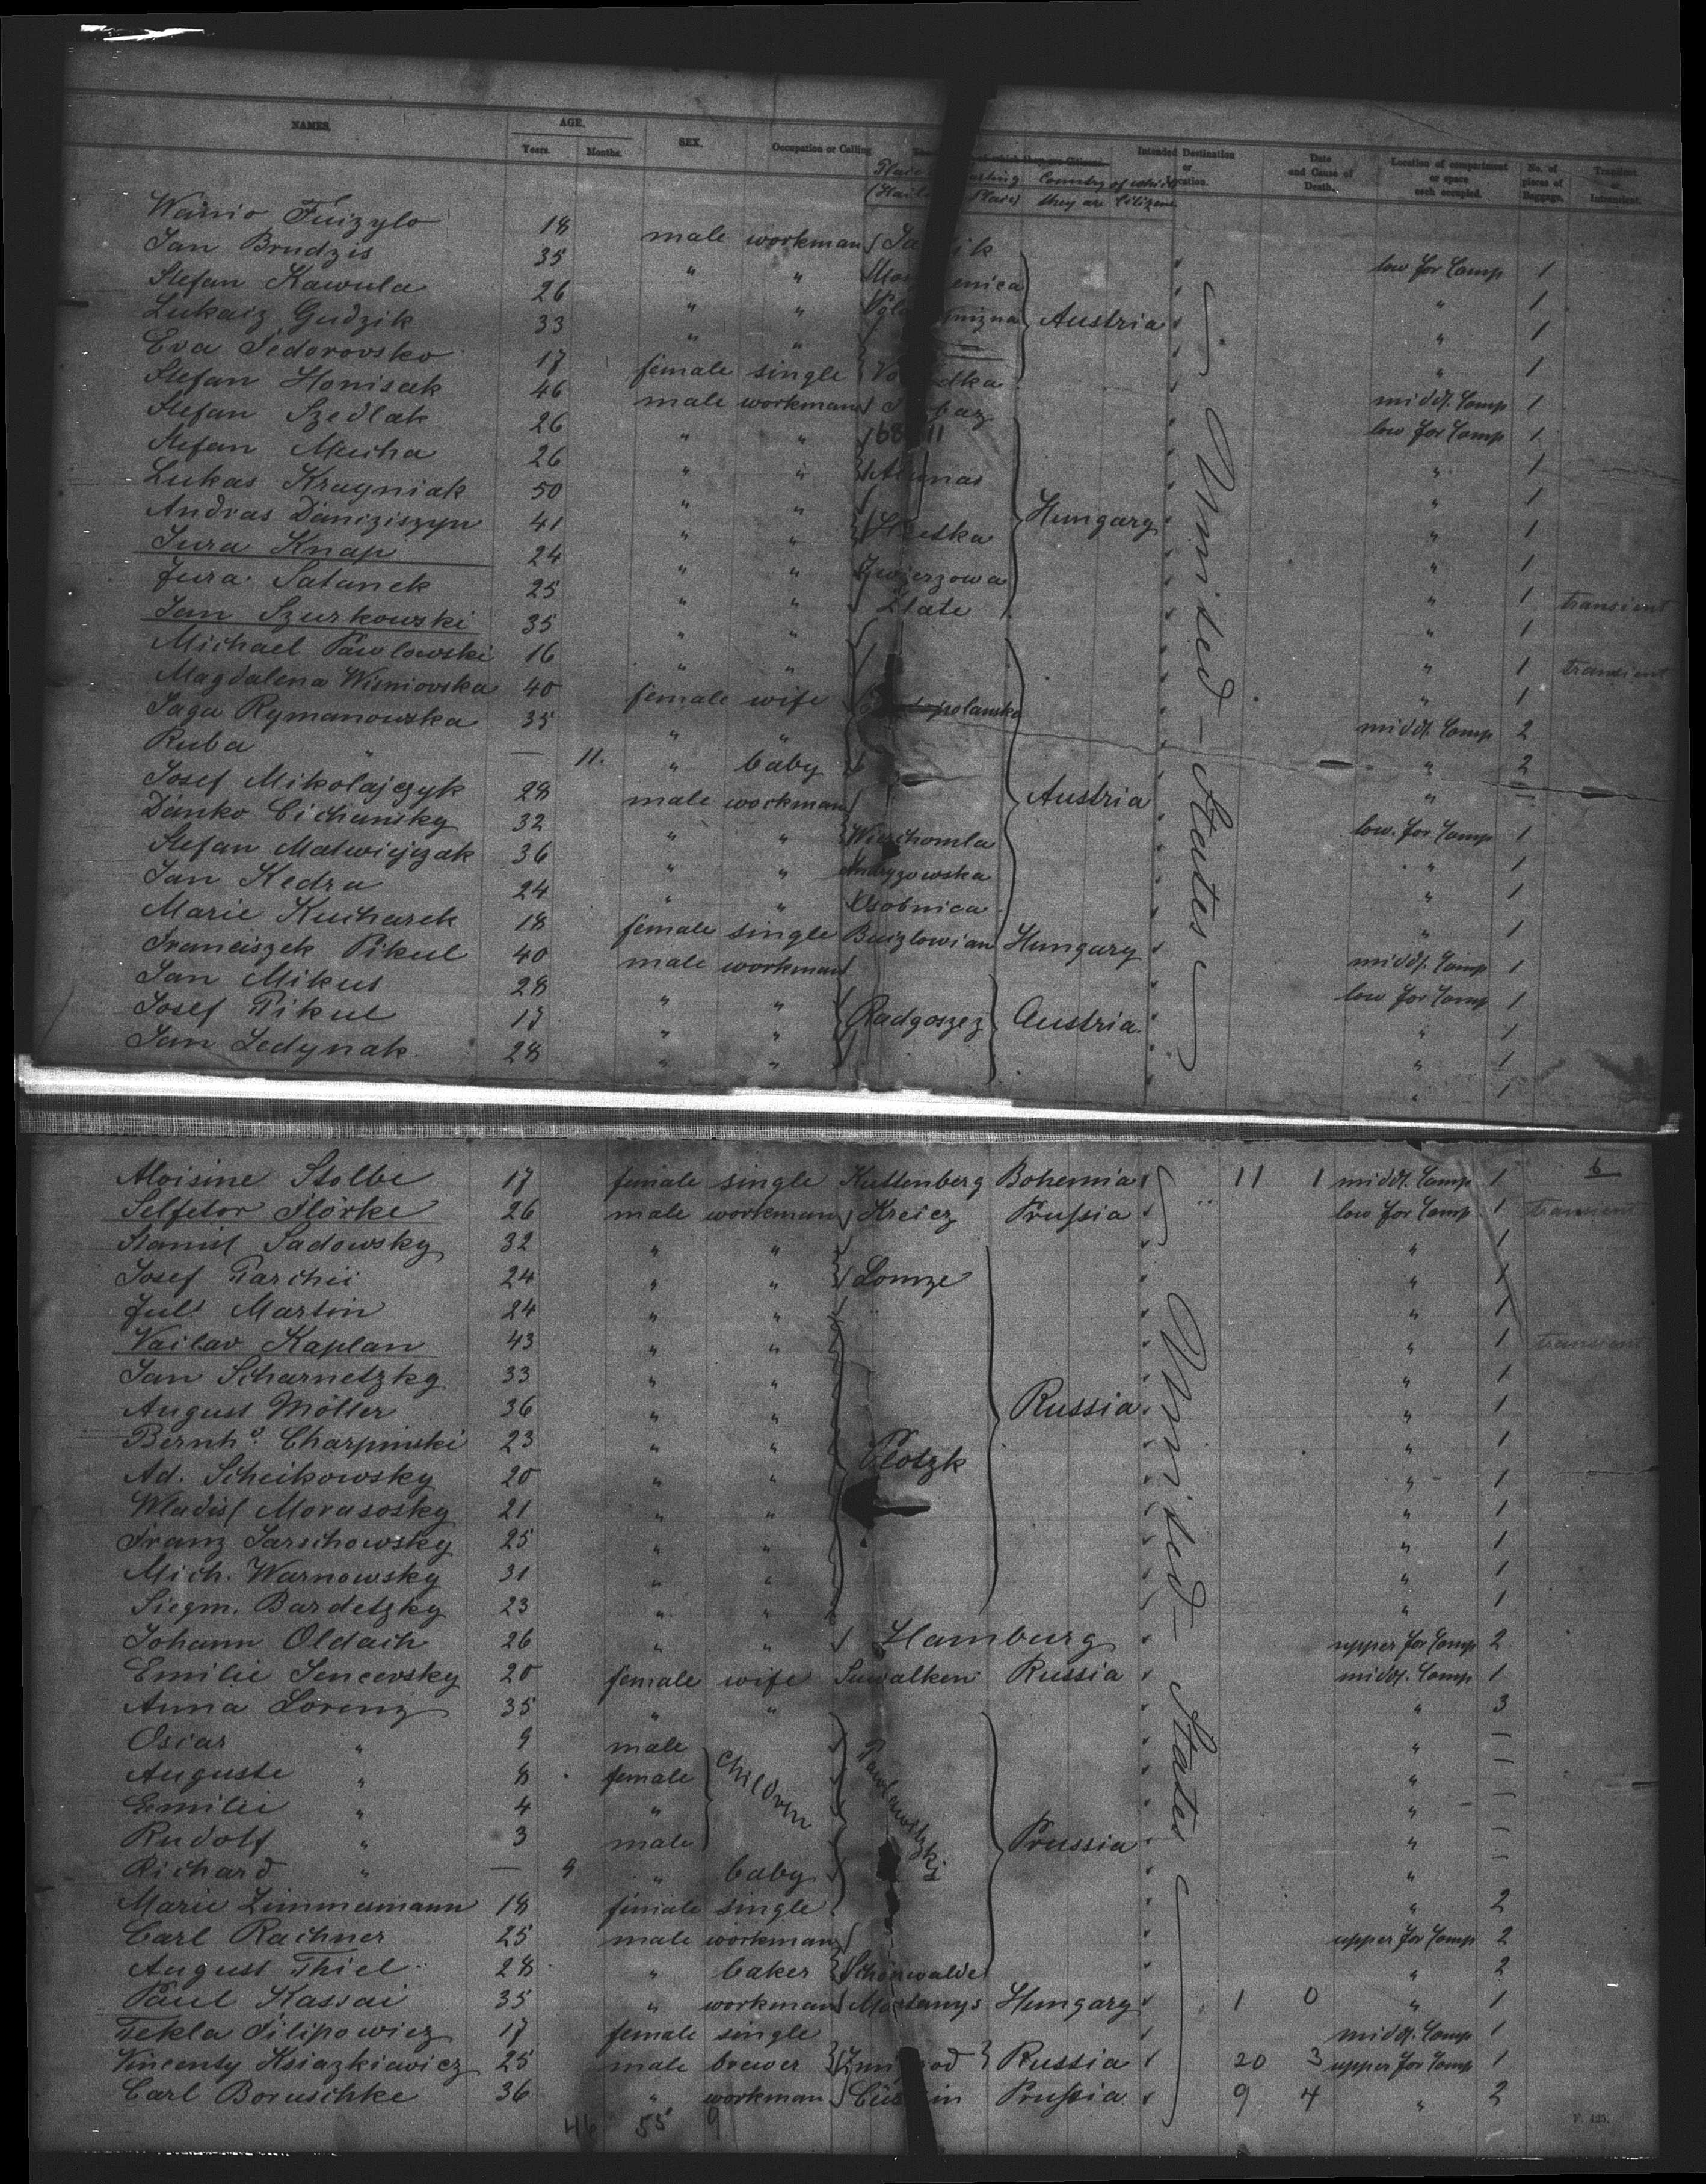 NAMES. AGE. SEX. Occupation or Calling Intended Destination or Location. Date and Cause of Death. Location of compartment or space each occupied. No. of pieces of Baggage. Transient or Intransient.
Years. Months. Country of which they are Citizens
Wanio 18 male workman low for Comp 1
Jan Brudzis 35 " " " 1
Stefan Kawula 26 " " Austria " 1
Lukasz Gudzik 33 " " " 1
Eva Fedorovsko 17 female single middl. Comp 1
Stefan Honisak 46 male workman low for Comp 1
Stefan Szedlak 26 " " " 1
Stefan Mucha 26 " " " 1
Lukas Kragniak 50 " " Hungary " 1
Andras Daniziszyn 41 " " " 1
Jura Knap 24 " " " 1 transient
Jura Satanek 25 " " Zlate " 1
Jan Szurkowski 35 " " " 1 transient
Michael Pawlowski 16 " " " 1
Magdalena Wisniovska 40 female wife middl. Comp 2
Jaga Rymanowska 35 " " " 2
Ruba " — 11. " baby " —
Josef Mikolajczyk 28 male workman Austria low. for Comp 1
Danko Cichansky 32 " " Wierchomla " 1
Stefan Matwiejczak 36 " " " 1
Jan Kedra 24 " " Osobnica " 1
Marie Kucharek 18 female single Hungary middl. Comp 1
Franciszek Pikul 40 male workman low for Comp 1
Jan Mikus 28 " " " 1
Josef Pikul 17 " " Radgoszez Austria. " 1
Jan Ledynak 28 " " " 1
United - States
Aloisine Stolbe 17 female single Kuttenberg Bohemia 11 1 middl. Comp 1 6
Selfetor Flörke 26 male workman Kreicz Prussia low for Comp 1 transient
Stanisl Sadowsky 32 " " " 1
Josef Parchii 24 " " Lomze " 1
Jul. Martin 24 " " " 1
Vaclav Kaplan 43 " " " 1 transient
Jan Scharnetzky 33 " " " 1
August Möller 36 " " Russia " 1
Bernhd. Charpinski 23 " " " 1
Ad. Scheikowsky 20 " " Plotzk " 1
Wladisl Morasosky 21 " " " 1
Franz Jarschowsky 25 " " " 1
Mich. Warnowsky 31 " " " 1
Siegm. Bardetzky 23 " " " 1
Johann Oldach 26 " " Hamburg upper for Comp 2
Emilie Sencevsky 20 female wife Suwalken Russia middl. Comp 1
Anna Lorenz 35 " " " 3
Oscar " 9 male children " —
Auguste " 8 female " —
Emilie " 4 " " —
Rudolf " 3 male Prussia " —
Richard " — 9 " baby " —
Marie Zimmermann 18 female single " 2
Carl Rachner 25 male workman upper for Comp 2
August Thiel 28 " baker Schönwalde " 2
Paul Kassai 35 " workman Hungary 1 0 " 1
Tekla Filipowicz 17 female single middl. Comp 1
Vincenty Ksiazkiewicz 25 male brewer Russia 20 3 upper for Comp 1
Carl Boruschke 36 " workman Prussia 9 4 " 2
United - States
46 55 9